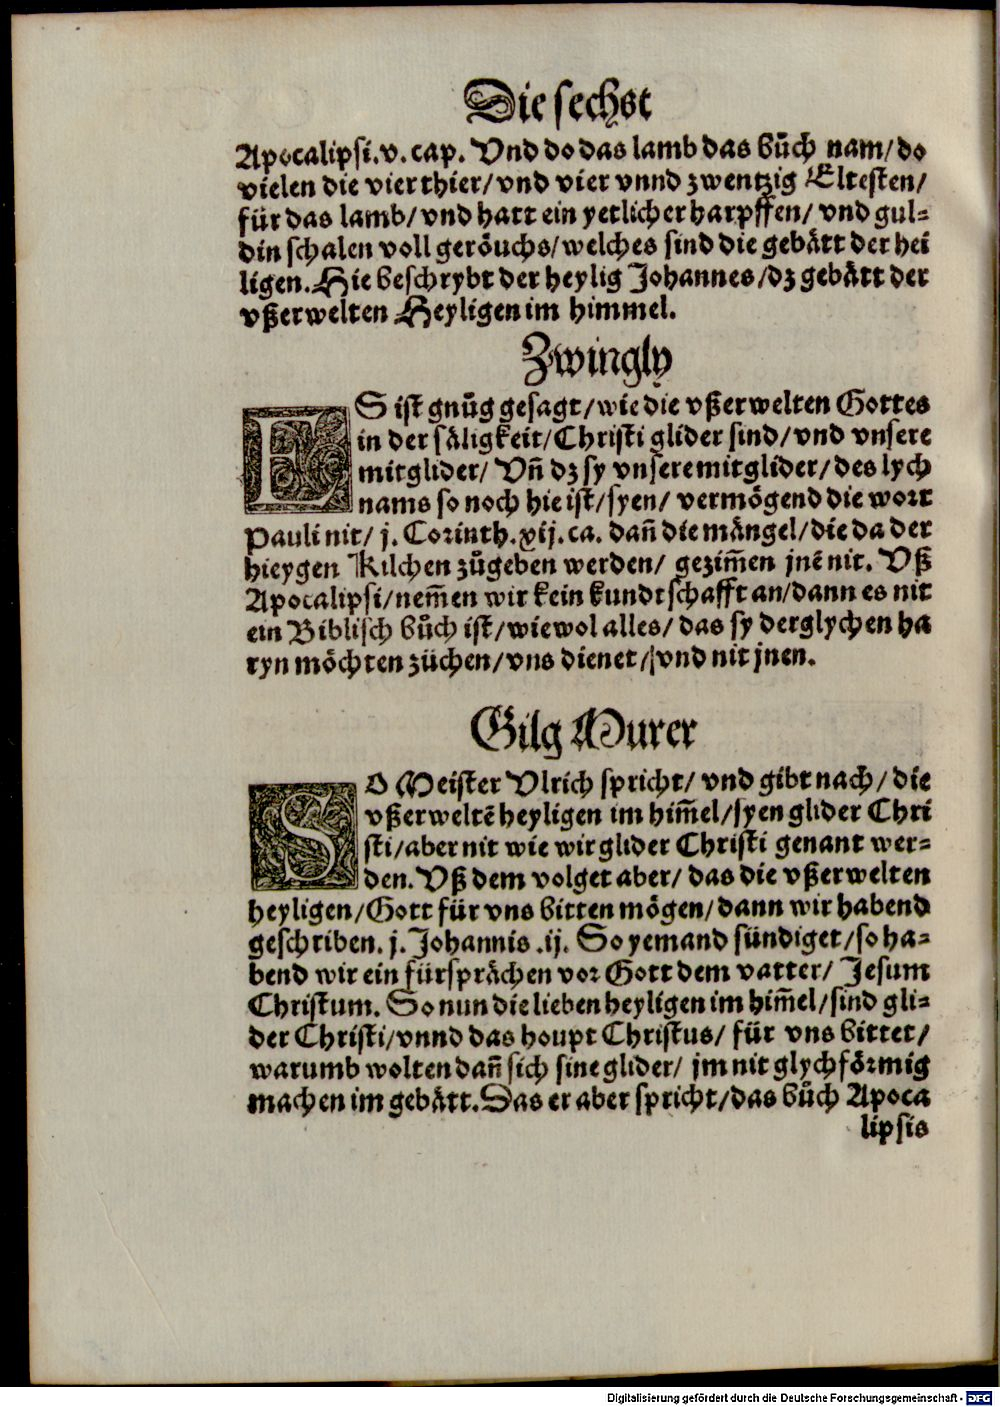 Die sechst
Apocalipsi.v. cap. Vnd do das lamb das bůch nam/do
vielen die vier thier/vnd vier vnnd zwentzig Eltesten/
für das lamb/vnd hatt ein yetlicher harpffen/ vnd gul⸗
din schalen voll geröuchs/welches sind die gebätt der hei
ligen. Hie beschrybt der heylig Johannes/dz gebätt der
vßerwelten Heyligen im himmel.
Zwingly
ES ist gnůg gesagt/wie die vßerwelten Gottes
in der säligkeit/Christi glider sind/vnd vnsere
mitglider/ Vñ dz sy vnsere mitglider/des lych
nams so noch hie ist/syen/ vermögend die wort
Pauli nit/ j. Corinth.xij.ca. dañ die mängel/die da der
hieygen Kilchen zůgeben werden/ gezim̃en jnẽ nit. Vß
Apocalipsi/nem̃en wir kein kundtschafft an/dann es nit
ein Biblisch bůch ist/wiewol alles/das sy derglychen ha
ryn möchten züchen/vns dienet/vnd nit jnen.
Gilg Murer
SO Meister Vlrich spricht/ vnd gibt nach/die
vßerweltẽ heyligen im him̃el/syen glider Chri
sti/aber nit wie wir glider Christi genant wer⸗
den. Vß dem volget aber/ das die vßerwelten
heyligen/Gott für vns bitten mögen/dann wir habend
geschriben. j. Johannis .ij. So yemand sündiget/so ha⸗
bend wir ein fürsprächen vor Gott dem vatter/ Jesum
Christum. So nun die lieben heyligen im him̃el/sind gli⸗
der Christi/vnnd das houpt Christus/ für vns bittet/
warumb wolten dañ sich sine glider/ jm nit glychförmig
machen im gebätt. Das er aber spricht/das bůch Apoca
lipsis
Digitalisierung gefördert durch die Deutsche Forschungsgemeinschaft - DFG